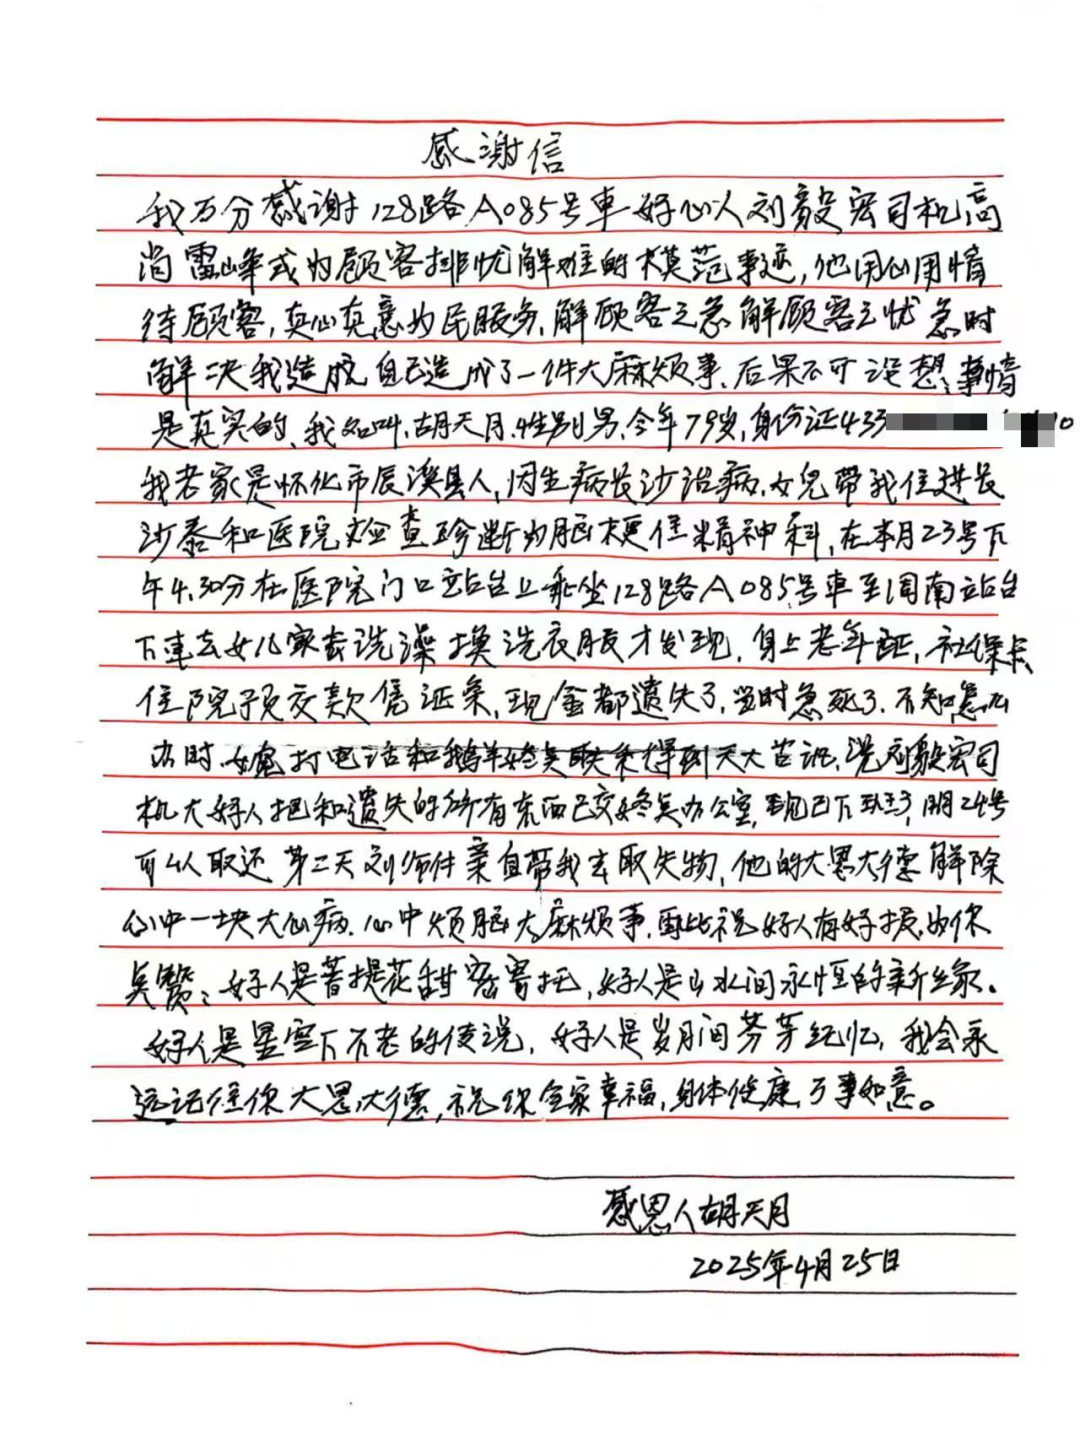 感谢信
我万分感谢128路A085号車好心人刘毅宏司机高
尚雷峰式为顾客排忧解难的模范事迹,他用心用情
待顾客,真心真意为民服务,解顾客之急解顾客之忧急时
解决我造成自己造成了一件大麻烦事、后果不可设想,事情
是真实的、我名叫,胡天月,性别男,今年79岁,身份证433
我老家是怀化市辰溪县人,因生病长沙治病,女兒带我住进长
沙泰和医院检查珍断为脑梗住精神科,在本月23号下
午4.30分在医院门口站台上乘坐128路A085号車至周南站台
下車去女儿家去洗澡换洗衣服才发现,身上老年证,社保卡
住院预交款凭证条,现金都遗失了,当时急死了.不知怎么
办时.打电话和联系得到天大答
机大好人把和遗失的所有东西已交终点办公室,现已下班了,明24号
可以取还第二天刘师什亲自带我去取失物,他的大恩大德解除
心中一块大心病.心中烦脑大麻烦事,再此祝好人有好报,为你
点赞:好人是菩提花甜密寄托,好人是山水间永恒的
好人是星空下不老的传说,好人是岁月间芬芳纪忆,我会永
远记住你大恩大德,祝你全家幸福,身体健康,万事如意。
感恩人胡天月
2025年4月25日